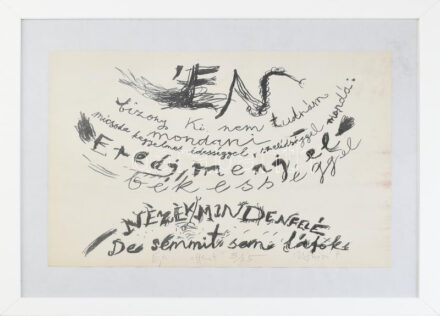 ÉN
bizony Ki nem tudnám
mondani
micsoda kegyelmes édességgel, szelídséggel mondá:
Eredj, menj el
békességgel
NÉZÉK MINDENFELÉ
De semmit sem láték